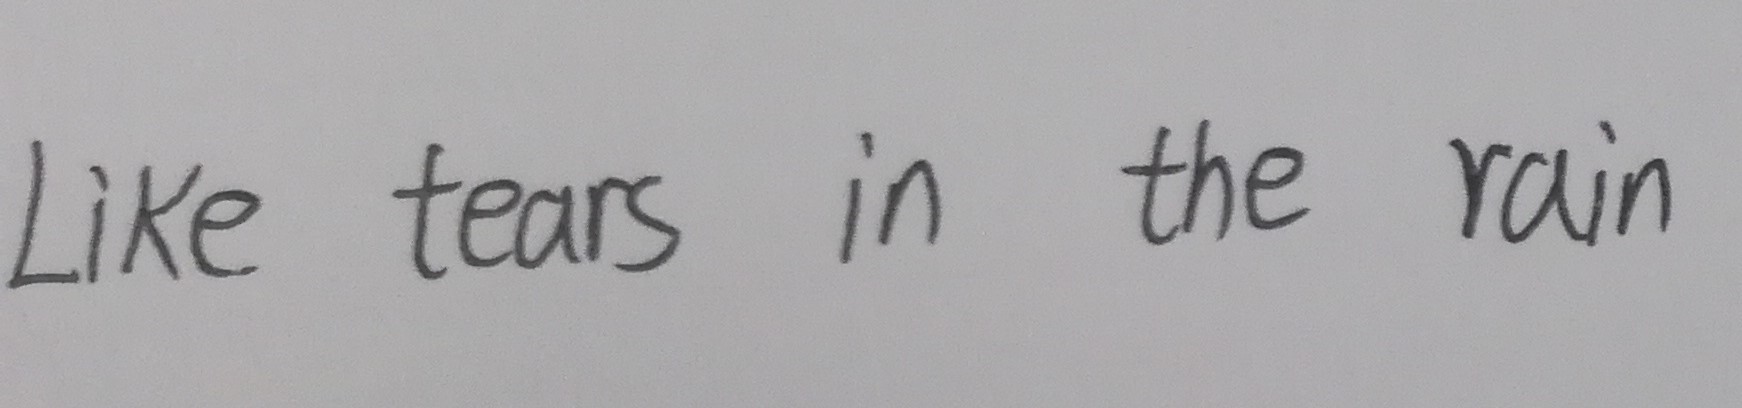 Like tears in the rain